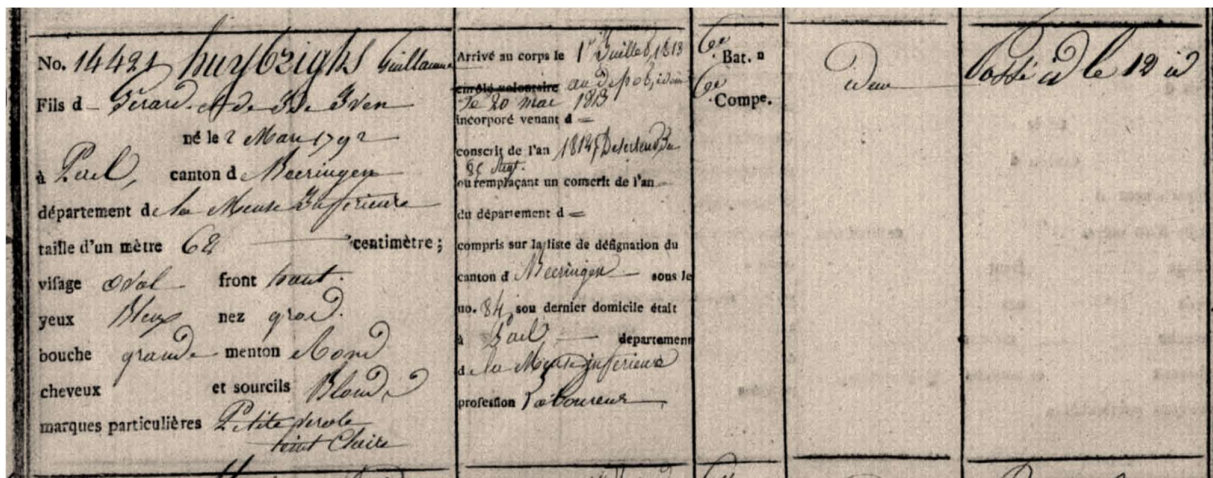 No. 14421 huybrighs Guillaume
Fils d Gérard et de
né le 2 Mars 1792
à Pael, canton d Beeringen
département de la Meuse Inferieure
taille d'un mètre 62 centimètre;
visage oval front haut.
yeux Bleux nez grod.
bouche grande menton Rond
cheveux et sourcils Blonds
marques particulières Petite verole
teint Claire
Arrivé au corps le 1r Juillet, 1813
enrôlé volontaire au depot,
le 20 mai 1813
incorporé venant d =
conscrit de l'an 1812, Deserteur Du
85 Regt.
ou remplaçant un conscrit de l'an
du département d =
compris sur la liste de désignation du
canton d Beeringen sous le
no. 84, son dernier domicile était
à Pael, département
de la Meuse inferieure
profession Laboureur
6e Bat. n
6e Compe.
idem
Passé id le 12 id